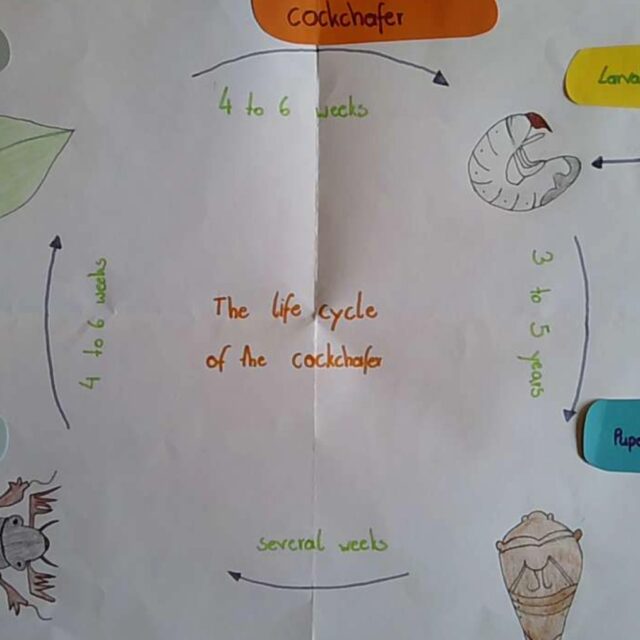 cockchafer
4 to 6 weeks
Larva
3 to 5 years
4 to 6 weeks
The life cycle
of the cockchafer
Pupa
several weeks